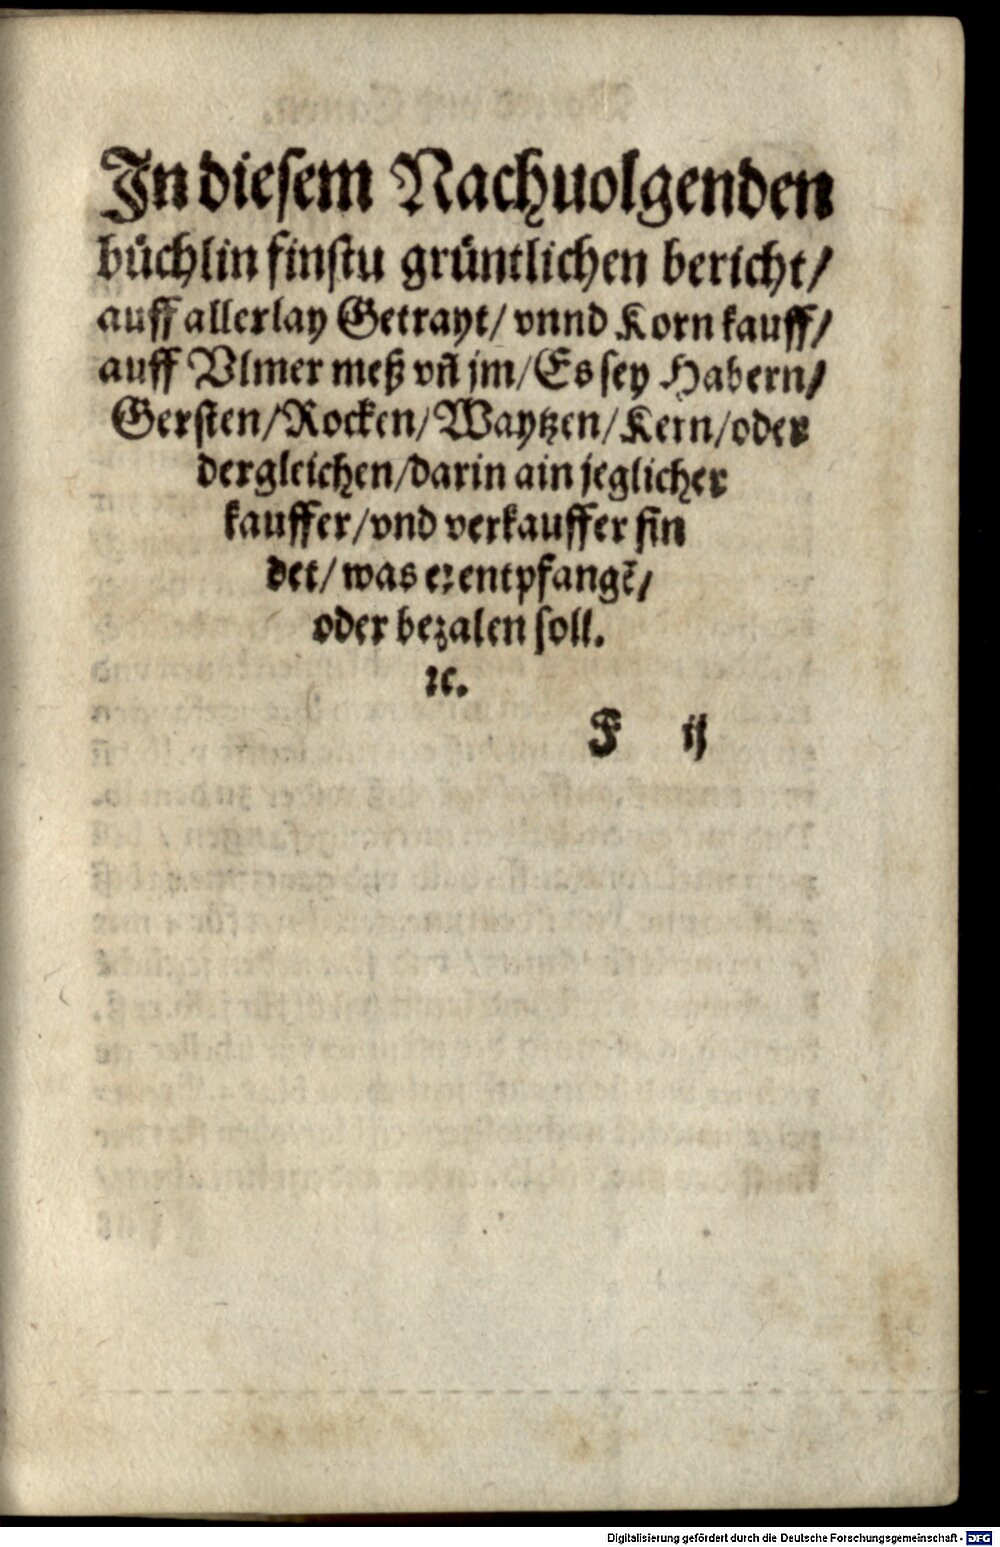 In diesem Nachuolgenden
büchlin finstu grüntlichen bericht/
auff allerlay Getrayt/ vnnd Korn kauff/
auff Vlmer meß vñ jm/ Es sey Habern/
Gersten/ Rocken/ Waytzen/ Kern/ oder
dergleichen/ darin ain jeglicher
kauffer/ vnd verkauffer fin
det/ was er entpfangẽ/
oder bezalen soll.
ꝛc.
F ij
Digitalisierung gefördert durch die Deutsche Forschungsgemeinschaft - DFG